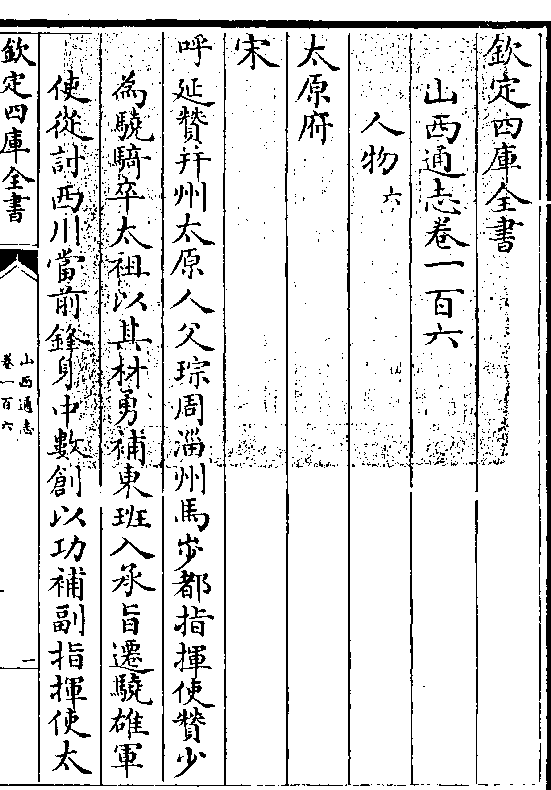 欽定四庫全書
山西通志卷一百六
人物六
太原府
宋
呼延贊并州太原人父琮周淄州馬步都指揮使贊少
為驍騎卒太祖以其材勇補東班入承旨遷驍雄軍
使從討西川當前鋒身中數創以功補副指揮使太
欽定四庫全書
山西通志
卷一百六
一